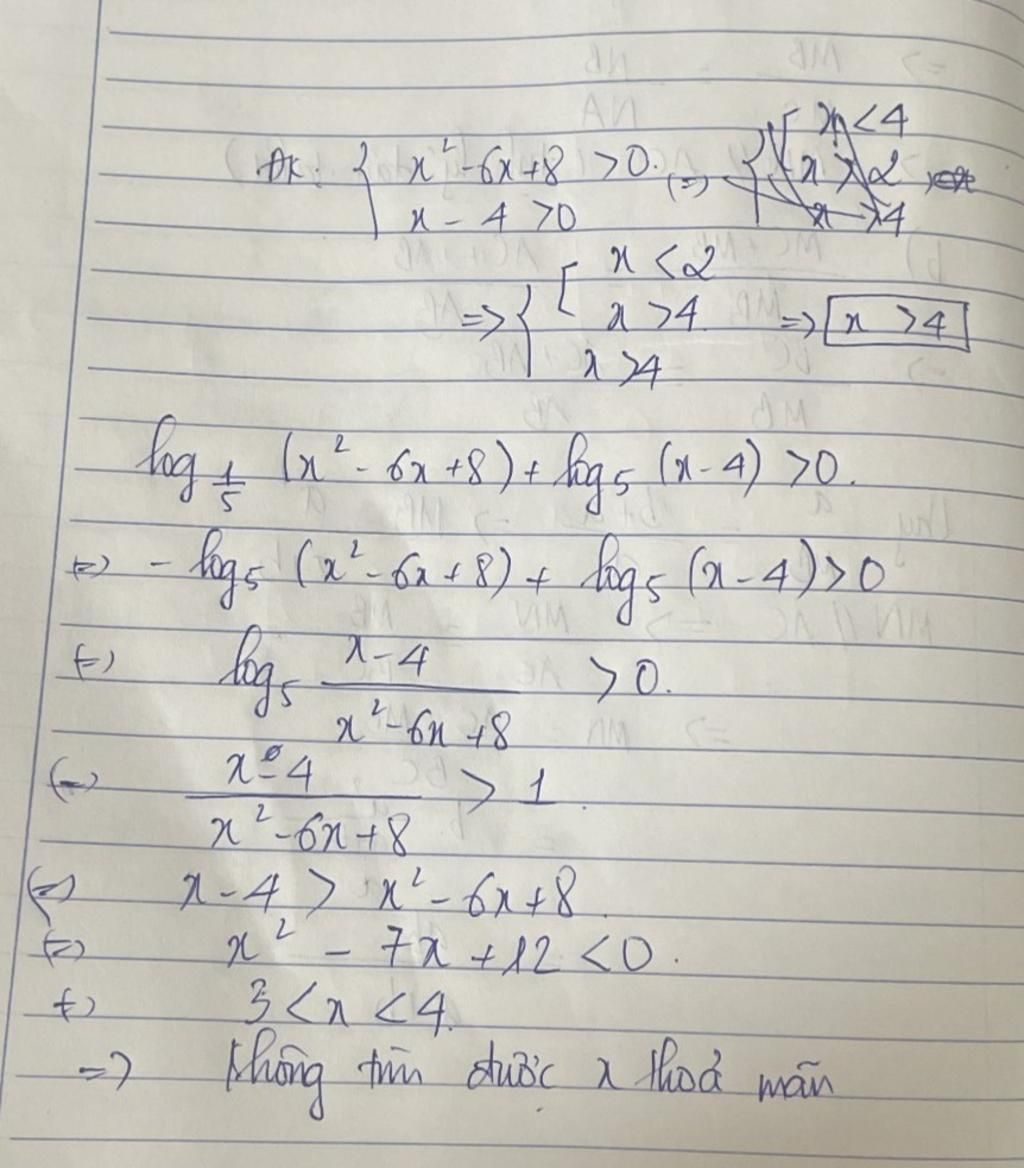 ĐK: { x² - 6x + 8 > 0. (=)
x - 4 > 0
=> { [ x < 2
x > 4 => x > 4
x > 4
log_{1/5} (x² - 6x + 8) + log_5 (x - 4) > 0.
(=) - log_5 (x² - 6x + 8) + log_5 (x - 4) > 0
(=) log_5 \frac{x - 4}{x² - 6x + 8} > 0.
(=) \frac{x - 4}{x² - 6x + 8} > 1.
(=) x - 4 > x² - 6x + 8
(=) x² - 7x + 12 < 0.
(=) 3 < x < 4.
=> Không tìm được x thoả mãn